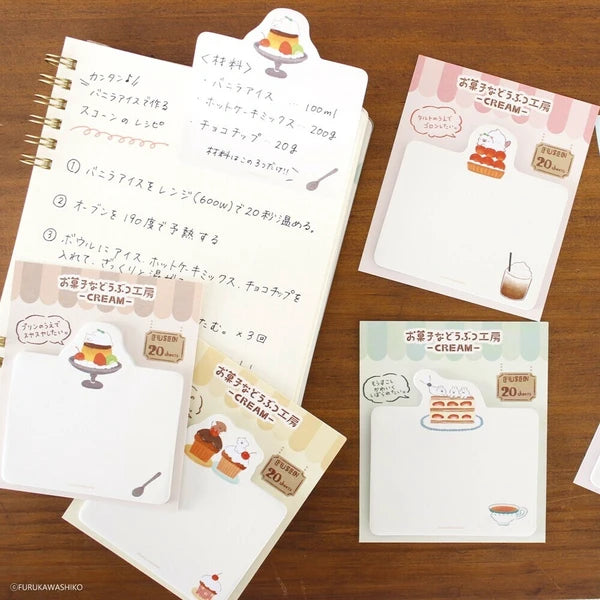 カンタン♪
バニラアイスで作る
スコーンのレシピ
<材料>
・バニラアイス … 100ml
・ホットケーキミックス … 200g
・チョコチップ 20g
材料はこの3つだけ!!
① バニラアイスをレンジ(600w)で20秒温める。
② オーブンを190度で予熱する
③ ボウルにアイス、ホットケーキミックス、チョコチップを
入れて、ざっくりと混ぜ
たむ。×3回
お菓子などうぶつ工房
-CREAM-
タルトのうえで
ゴロンしたい。
FUSEN
20 sheets
お菓子などうぶつ工房
-CREAM-
プリンのうえで
スヤスヤしたい。
FUSEN
20 sheets
お菓子などうぶつ工房
-CREAM-
FUSEN
20 sheets
お菓子などうぶつ工房
-CREAM-
もうすこし
かわいく
しぼりめで。
FUSEN
20 sheets
©FURUKAWASHIKO